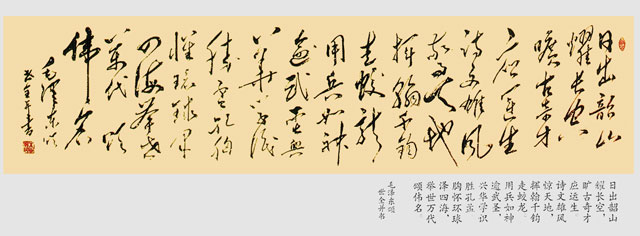 日出韶山
耀长空
旷古奇才
应运生
诗文雄风
惊天地
挥翰千钧
走蛟龙
用兵如神
逾武圣兴
华学识
胜孔孟胸
怀环球泽
四海举世
万代颂
伟名
毛泽东颂
世全并书
日出韶山
耀长空，
旷古奇才
应运生。
诗文雄风
惊天地，
挥翰千钧
走蛟龙。
用兵如神
逾武圣，
兴华学识
胜孔孟。
胸怀环球
泽四海，
举世万代
颂伟名。
毛泽东颂
世全并书